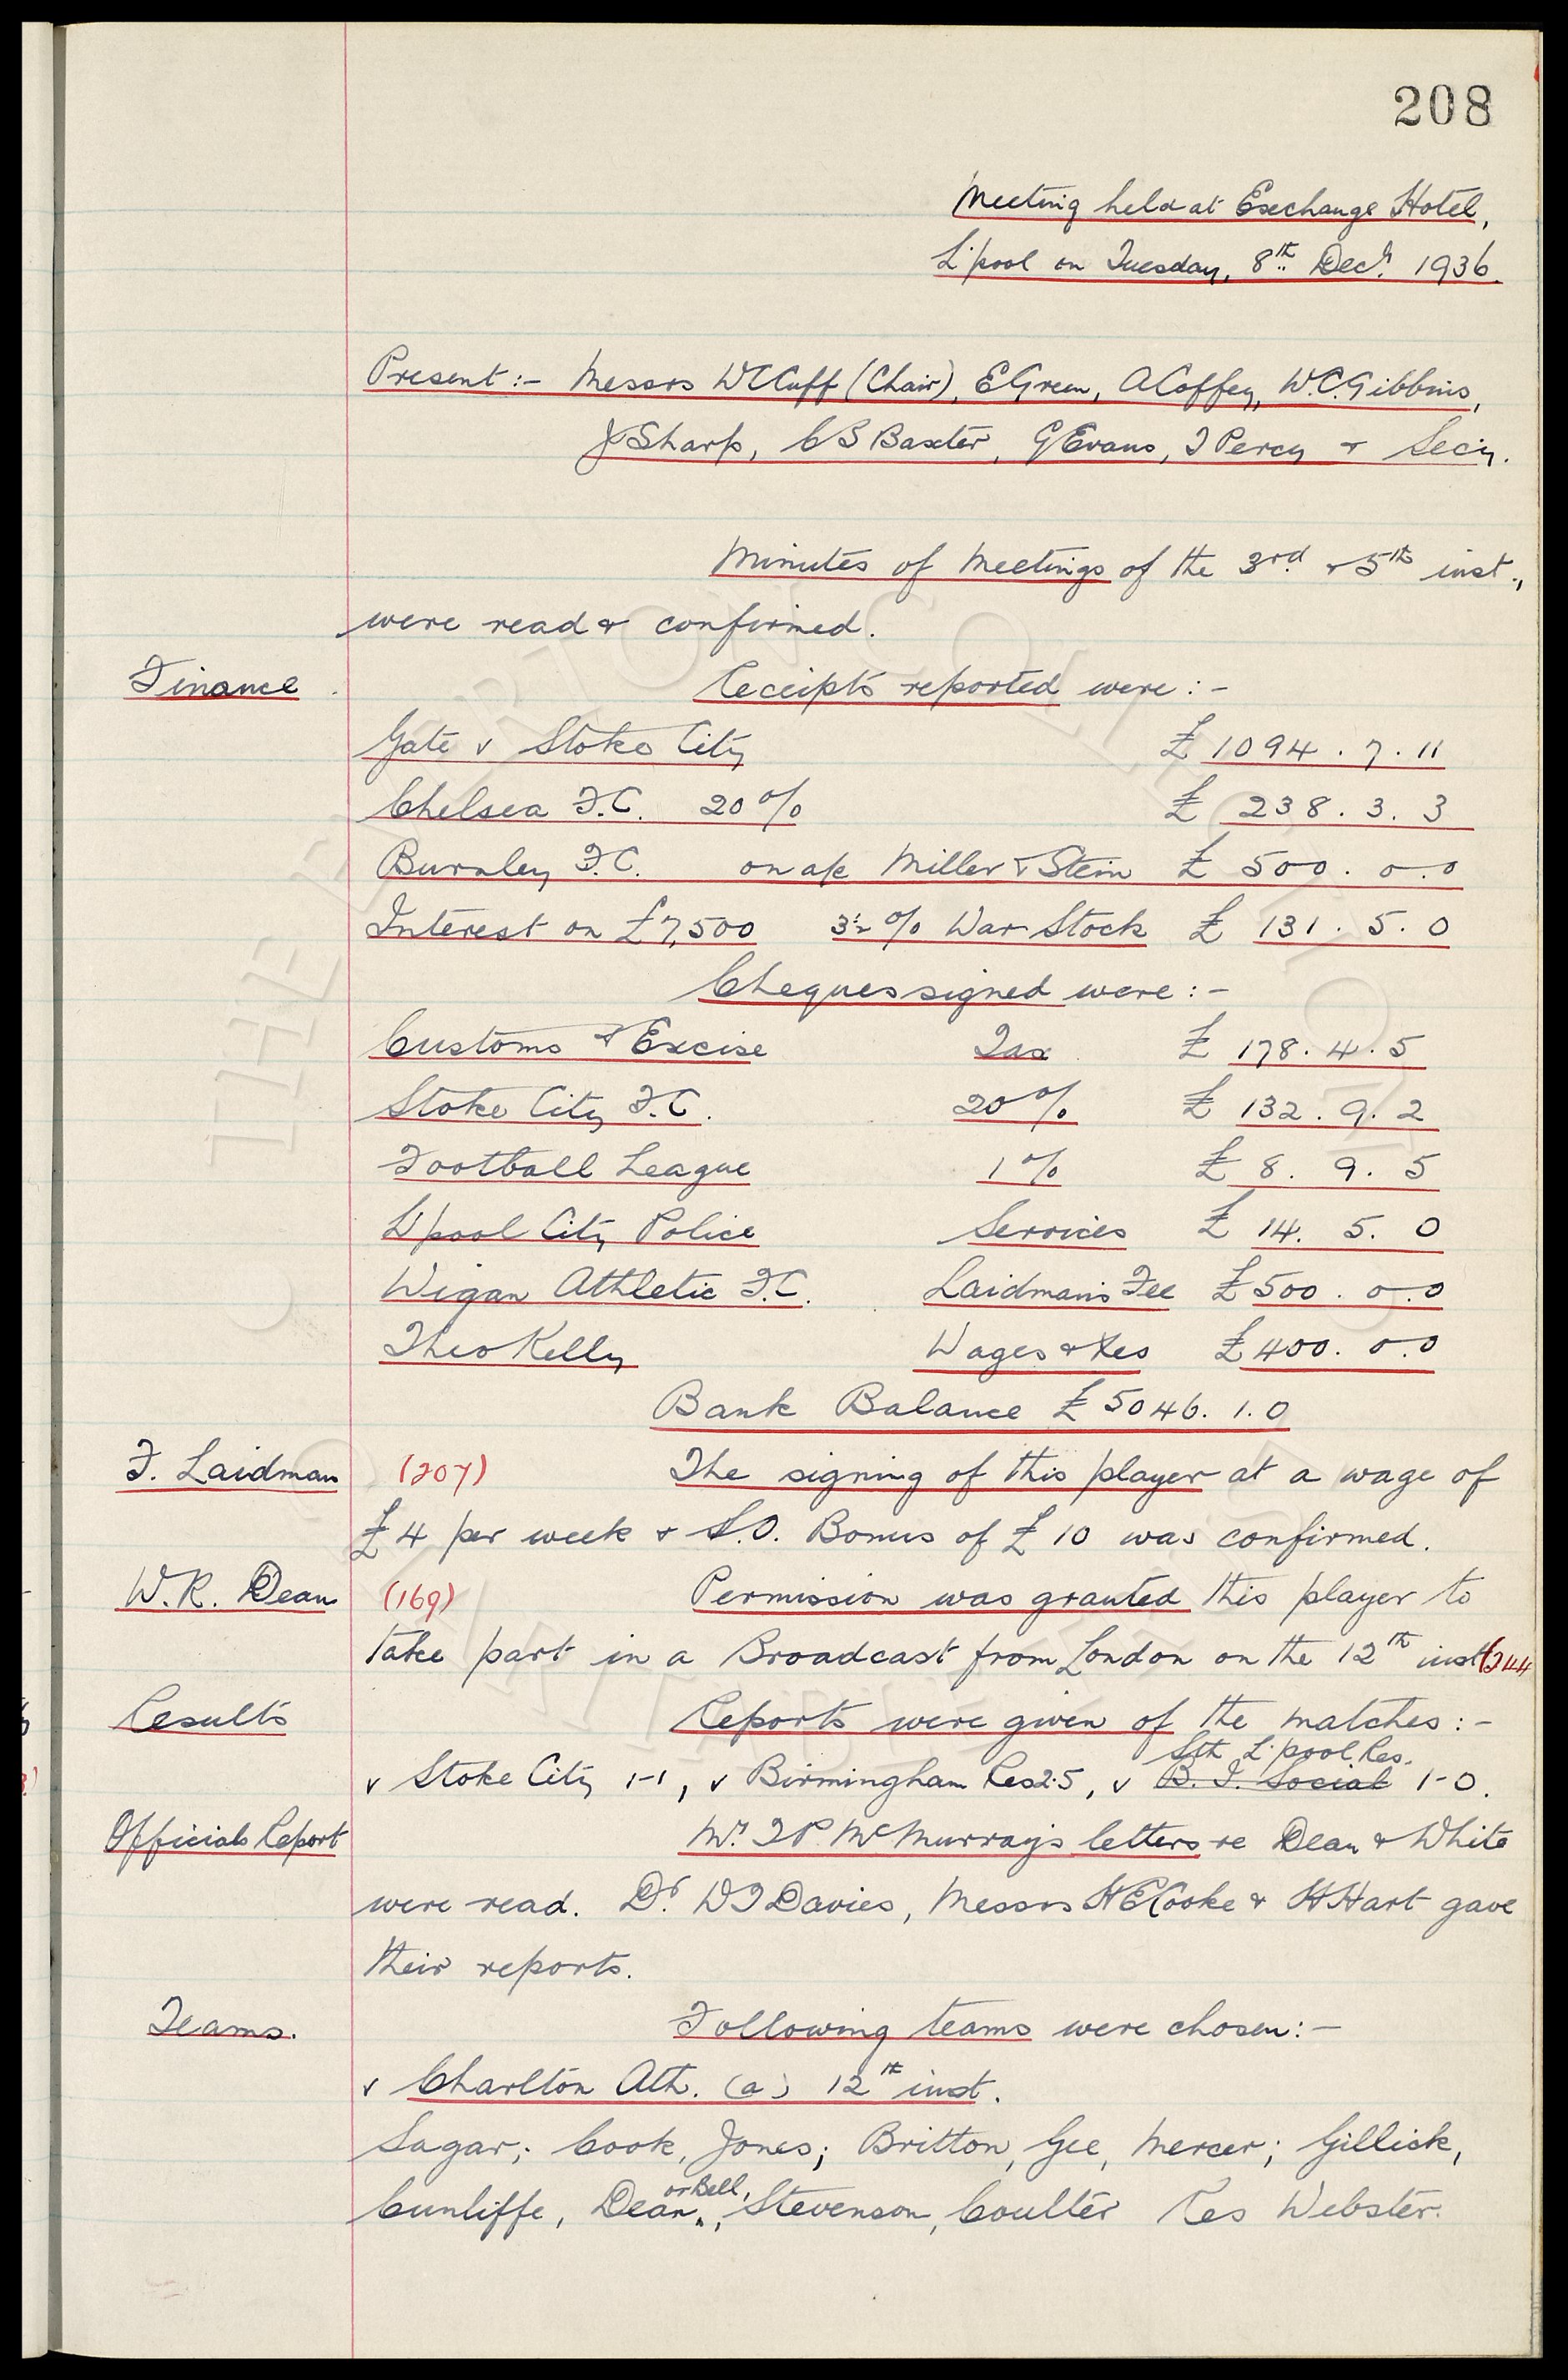 208
Meeting held at Exchange Hotel,
L'pool on Tuesday, 8th Decr. 1936.
Present:- Messrs W C Cuff (Chair), E Green, A Coffey, W.C. Gibbins,
J Sharp, C S Baxter, G Evans, T Percy & Secy.
Minutes of Meetings of the 3rd & 5th inst.,
were read & confirmed.
Finance Receipts reported were:-
Gate v Stoke City £ 1094. 7. 11
Chelsea F.C. 20% £ 238. 3. 3
Burnley F.C. on a/c Miller & Stein £ 500. 0. 0
Interest on £7,500 3½% War Stock £ 131. 5. 0
Cheques signed were:-
Customs & Excise Tax £ 178. 4. 5
Stoke City F.C. 20% £ 132. 9. 2
Football League 1% £ 8. 9. 5
L'pool City Police Services £ 14. 5. 0
Wigan Athletic F.C. Laidman's Fee £ 500. 0. 0
Theo Kelly Wages & Xes £ 400. 0. 0
Bank Balance £ 5046. 1. 0
F. Laidman (207) The signing of this player at a wage of
£4 per week & S.O. Bonus of £10 was confirmed.
W.R. Dean (169) Permission was granted this player to
take part in a Broadcast from London on the 12th inst (244
Results Reports were given of the matches:-
Sth L'pool Res.
v Stoke City 1-1, v Birmingham Res 2-5, v B.I. Social 1-0.
Officials Report Mr. T P McMurray's letters re Dean & White
were read. Dr. W T Davies, Messrs H E Cooke & H Hart gave
their reports.
Teams. Following teams were chosen:-
v Charlton Ath. (a) 12th inst.
Sagar; Cook, Jones; Britton, Gee, Mercer; Gillick,
or Bell,
Cunliffe, Dean, Stevenson, Coulter Res Webster.